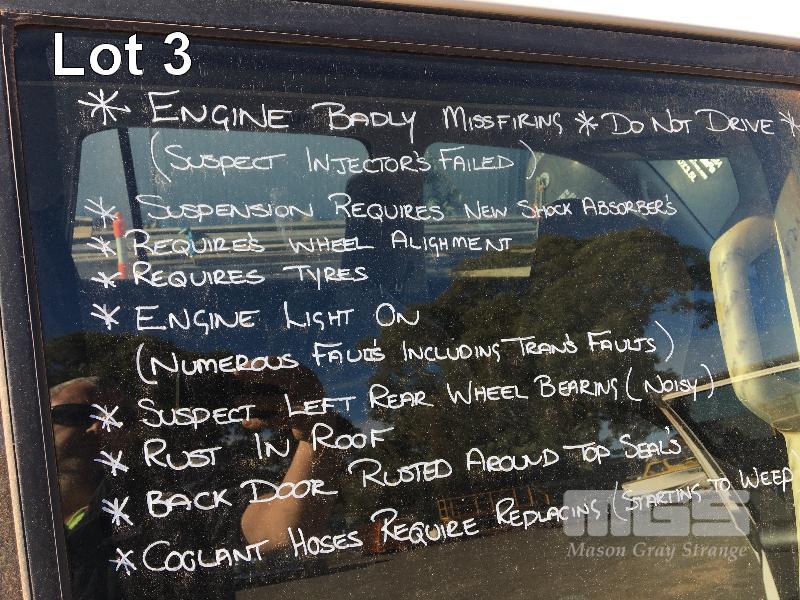 Lot 3
* ENGINE BADLY MISSFIRING * DO NOT DRIVE *
(SUSPECT INJECTOR'S FAILED)
* SUSPENSION REQUIRES NEW SHOCK ABSORBER'S
* REQUIRE'S WHEEL ALIGHMENT
* REQUIRES TYRES
* ENGINE LIGHT ON
(NUMEROUS FAULTS INCLUDING TRAN'S FAULTS)
* SUSPECT LEFT REAR WHEEL BEARING (NOISY)
* RUST IN ROOF
* BACK DOOR RUSTED AROUND TOP SEAL'S
* COOLANT HOSES REQUIRE REPLACING (STARTING TO WEEP
MGS
Mason Gray Strange